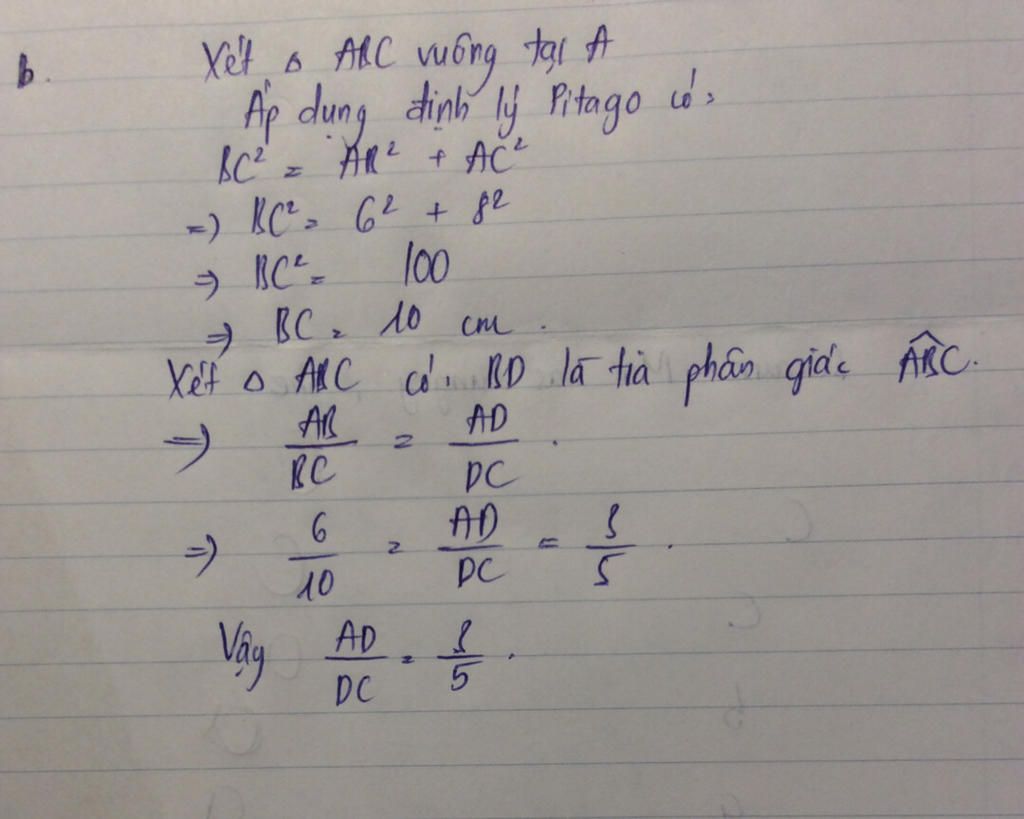 b. Xét Δ ABC vuông tại A
Áp dụng định lý Pitago có:
BC² = AB² + AC²
=> BC² = 6² + 8²
=> BC² = 100
=> BC = 10 cm.
Xét Δ ABC có: BD là tia phân giác ABC.
=> AB/BC = AD/DC.
=> 6/10 = AD/DC = 3/5.
Vậy AD/DC = 3/5.